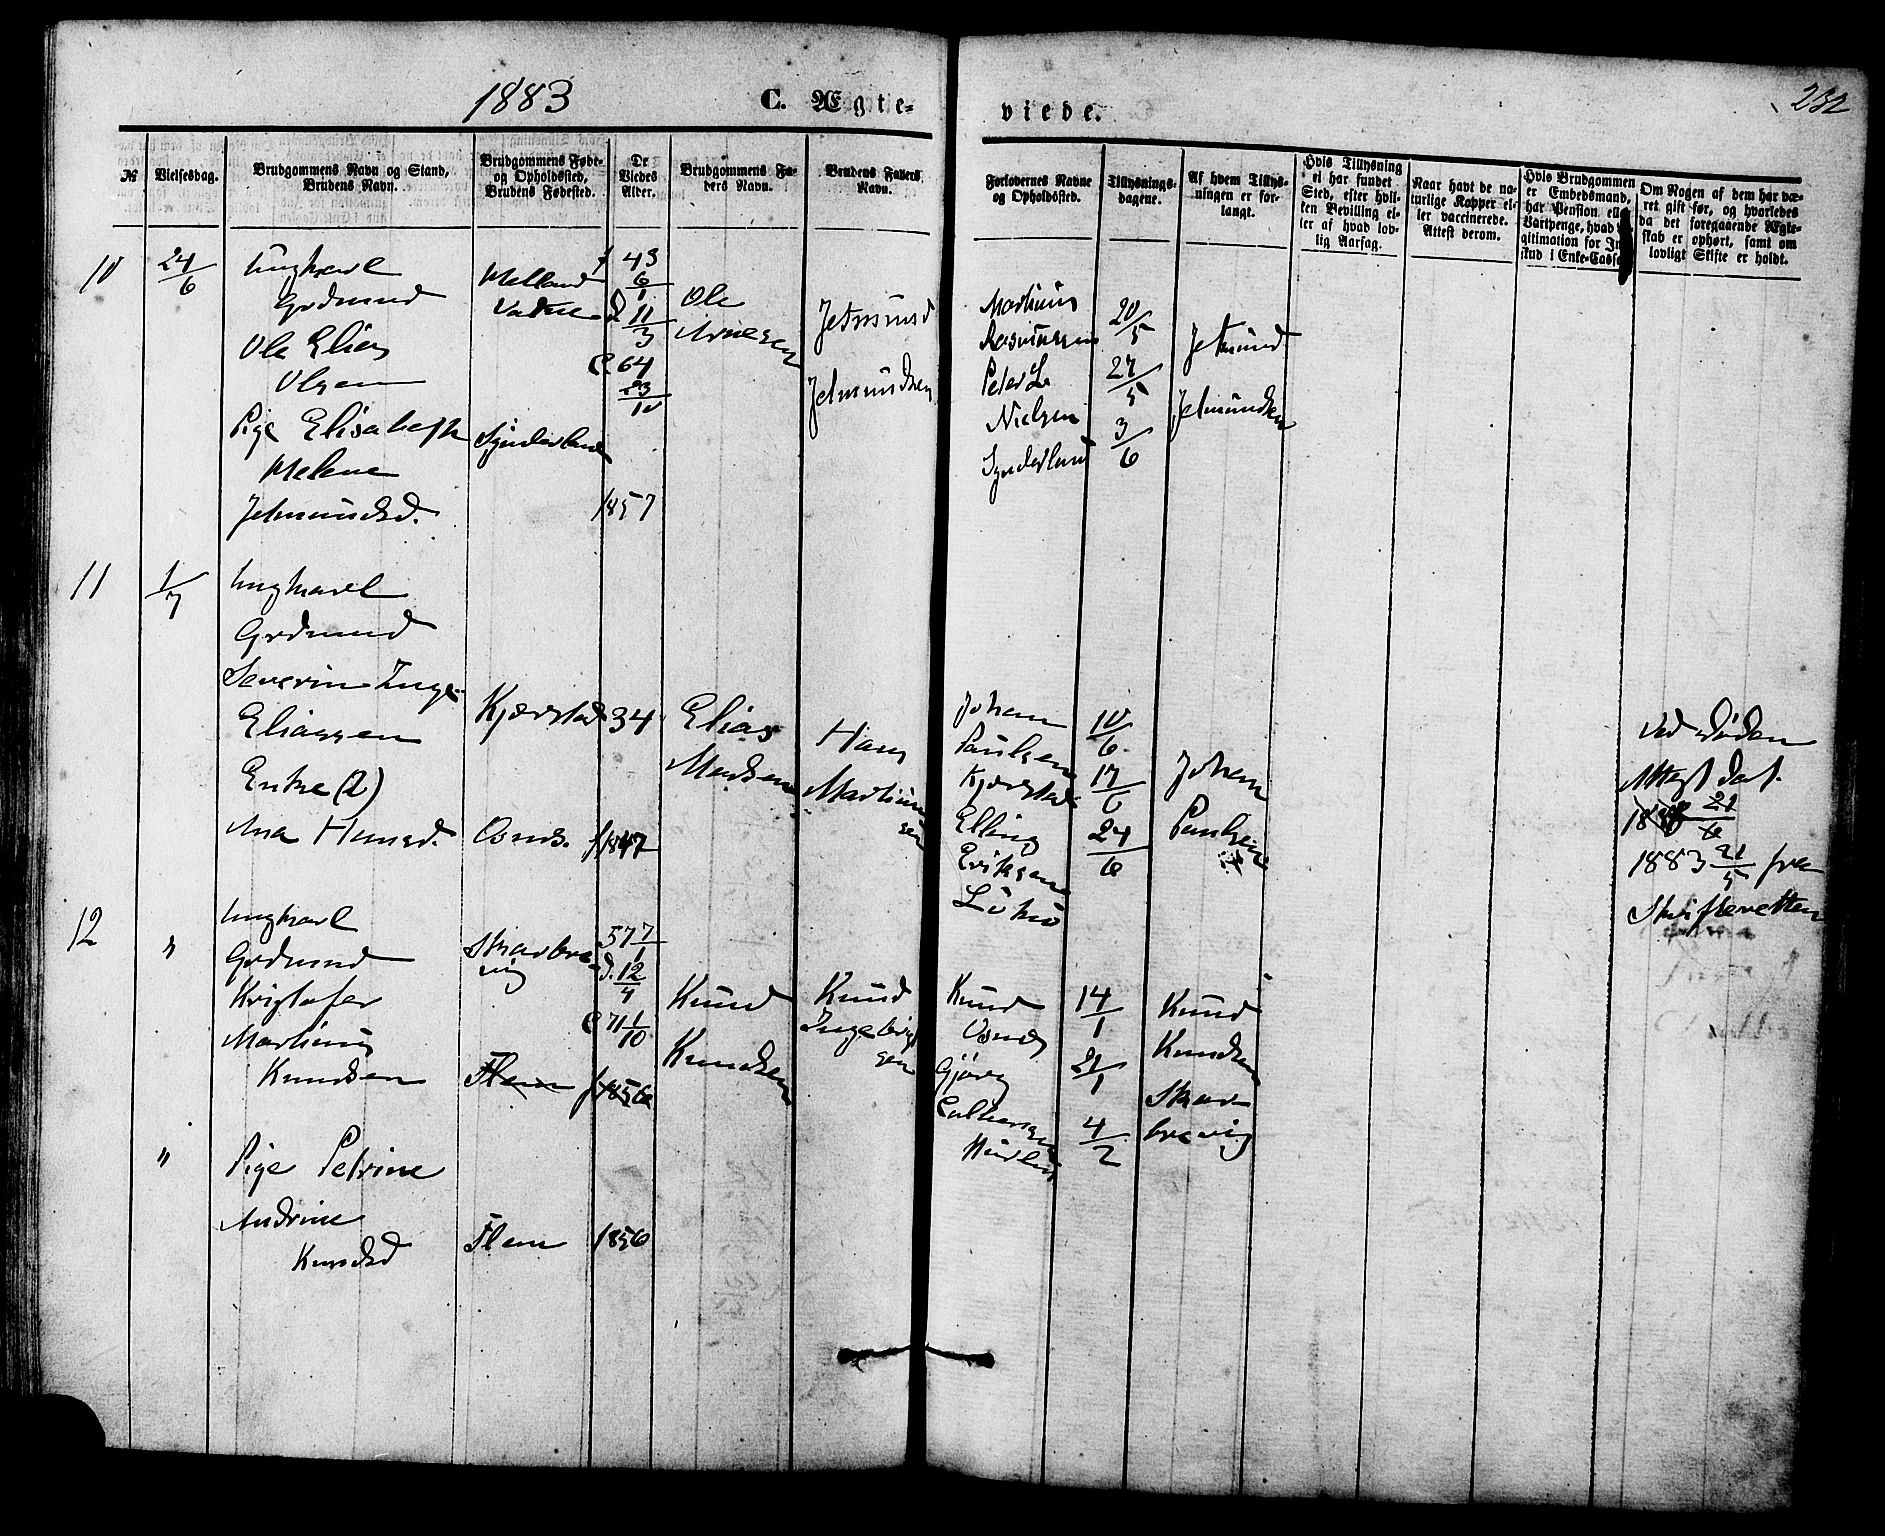 1883
C. Ægte-
viede.
232
№
Vielsesdag.
Brudgommens Navn og Stand,
Brudens Navn.
Brudgommens Føde-
og Opholdssted,
Brudens Fødested.
De
Viedes
Alder.
Brudgommens Fa-
ders Navn.
Brudens Faders
Navn.
Forlovernes Navne
og Opholdssted.
Tillysnings-
dagene.
Af hvem Tillys-
ningen er for-
langt.
Hvis Tillysning
ei har fundet
Sted, efter hvil-
ken Bevilling el-
ler af hvad lov-
lig Aarsag.
Naar havt de na-
turlige Kopper el-
ler vaccinerede.
Attest derom.
Hvis Brudgommen
er Embedsmand,
har Pension ell
Vartpenge, hvad
gitimation for In
skud i Enke-Casse
Om Nogen af dem har væ-
ret gift før, og hvorledes
da det foregaaende Ægte-
skab er ophørt, samt om
lovligt Skifte er holdt.
10
24/6
Ungkarl
Grdmand
Ole Elias
Olsen
Pige Elisabeth
Melene
Jetmundsd.
Melland
Vatne
Synderland
f 43
6/1
d. 11/3
C. 64
23/10
1857
Ole
Arnesen
Jetmund
Jetmundsen
Martinus
Rasmussen
Peter L.
Nielsen
Synderland
20/5
27/5
3/6
Jetmund
Jetmundsen
11
1/7
Ungkarl
Grdmand
Severin Inge
Eliassen
Enke (2)
Ana Hansd.
Kjørstad
Osnes.
34
f 1847
Elias
Madsen
Hans
Martinus
sen
Johan
Paulsen
Kjørstad
Elling
Eriksen
10/6
17/6
24/6
Johan
Paulsen
ved Døden
Attest dat.
21/6
1883 21/5 fra
Skifteretten
12
"
Ungkarl
Grdmand
Kristofer
Martinus
Knudsen
Skarbre
vig
Flem
577/1
d. 12/4
C 71 1/10
f 1856
Knud
Knudsen
Knud
Ingebrigt
sen
Knud
Osnes
Gjørg
14/1
21/1
4/2
Knud
Knudsen
Skar
brevig
"
Pige Petrine
Andrine
Knudsd
Flem
1856